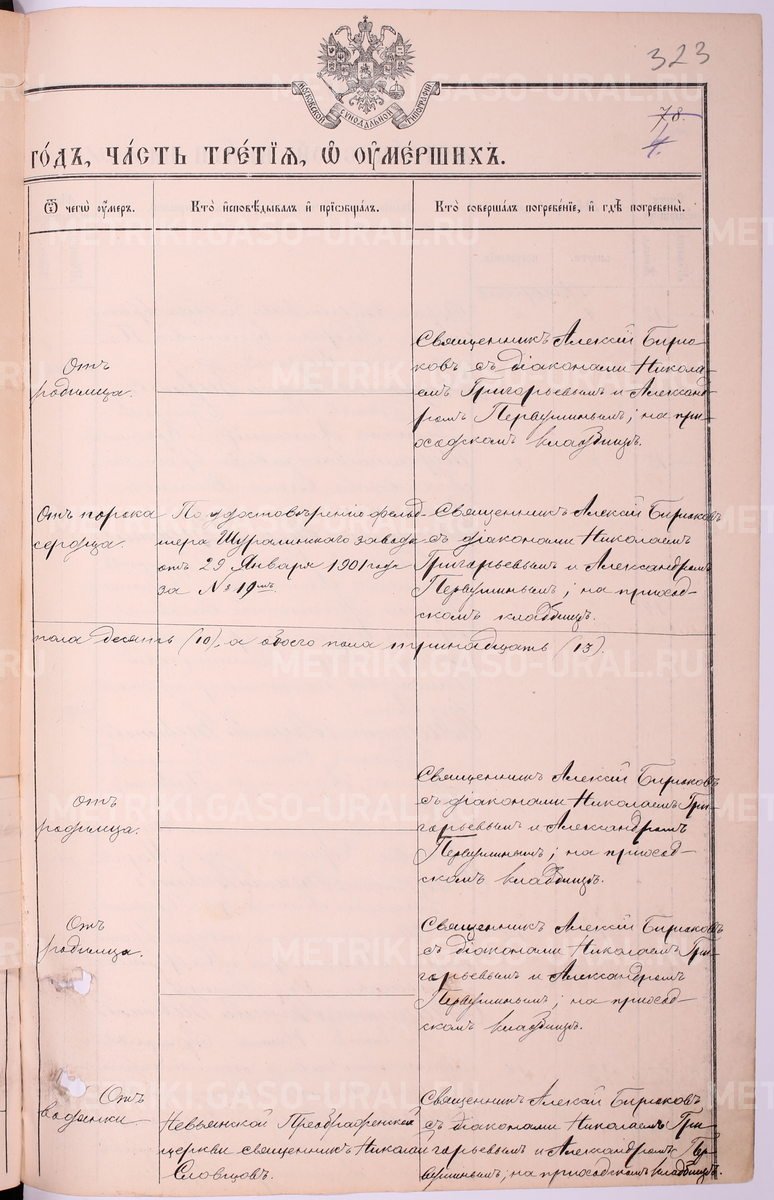 323
МОСКОВСКОЙ СѴНОДАЛЬНОЙ ТИПОГРАФІИ
78.
4.
ГО́ДЪ, ЧА́СТЬ ТРЕ́ТІѦ, Ѡ҆ ОУ҆МЕ́РШИХЪ.
Ѿ чегѡ̀ оу҆́меръ.
Кто̀ и҆сповѣ́дывалъ и҆ прїѡбща́лъ.
Кто̀ соверша́лъ погребе́нїе, и҆ гдѣ̀ погребены̀.
Отъ
родимца.
Священникъ Алексій Бирю-
ковъ съ діаконами Никола-
емъ Григорьевымъ и Александ-
ромъ Первушинымъ; на при-
ходскомъ кладбищѣ.
Отъ порока
сердца.
По удостовѣренію фельд-
шера Шуралинскаго завода
отъ 29 Января 1901 года
за № 19мъ.
Священникъ Алексій Бирюковъ
съ діаконами Николаемъ
Григорьевымъ и Александромъ
Первушинымъ; на приход-
скомъ кладбищѣ.
пола десять (10), а обоего пола тринадцать (13).
Отъ
родимца.
Священникъ Алексій Бирюковъ
съ діаконами Николаемъ Гри-
горьевымъ и Александромъ
Первушинымъ; на приход-
скомъ кладбищѣ.
Отъ
родимца.
Священникъ Алексій Бирюковъ
съ діаконами Николаемъ Гри-
горьевымъ и Александромъ
Первушинымъ; на приход-
скомъ кладбищѣ.
Отъ
водянки
Невьянской Преображенской
церкви священникъ Николай
Словцовъ.
Священникъ Алексій Бирюковъ
съ діаконами Николаемъ Гри-
горьевымъ и Александромъ Пер-
вушинымъ; на приходскомъ кладбищѣ.
METRIKI.GASO-URAL.RU